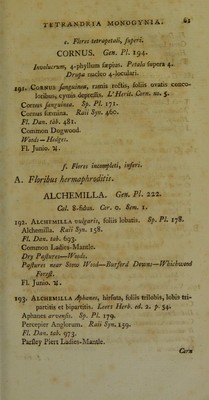 TETRANDRIA MONOGYNIA. 61
e. Flores tetrapetali, superi.
CORNUS. Gen. Pl. 194.
Involucrum, 4-phyllum sæpius. Petala supera 4.
Drupa nucleo 4-loculari.
191. Cornus sanguinea, ramis rectis, foliis ovatis conco-
loribus, cymis depressis. L'Herit. Corn. m. 5.
Cornus sanguinea. Sp. Pl. 171.
Cornus fœmina. Raii Syn. 460.
Fl. Dan. tab. 481.
Common Dogwood.
Woods—Hedges.
Fl. Junio. ♄.
f. Flores incompleti, inferi.
A. Floribus hermaphroditis.
ALCHEMILLA. Gen. Pl. 222.
Cal. 8-fidus. Cor. 0. Sem. 1.
192. Alchemilla vulgaris, foliis lobatis. Sp. Pl. 178.
Alchemilla. Raii Syn. 158.
Fl. Dan. tab. 693.
Common Ladies-Mantle.
Dry Pastures—Woods.
Pastures near Stow Wood—Burford Downs—Whichwood
Forest.
Fl. Junio. ♃.
193. Alchemilla Aphanes, hirsuta, foliis trilobis, lobis tri-
partitis et bipartitis. Leers Herb. ed. 2. p. 54.
Aphanes arvensis. Sp. Pl. 179.
Percepier Anglorum. Raii Syn. 159.
Fl. Dan. tab. 973.
Parsley Piert Ladies-Mantle.
Corn